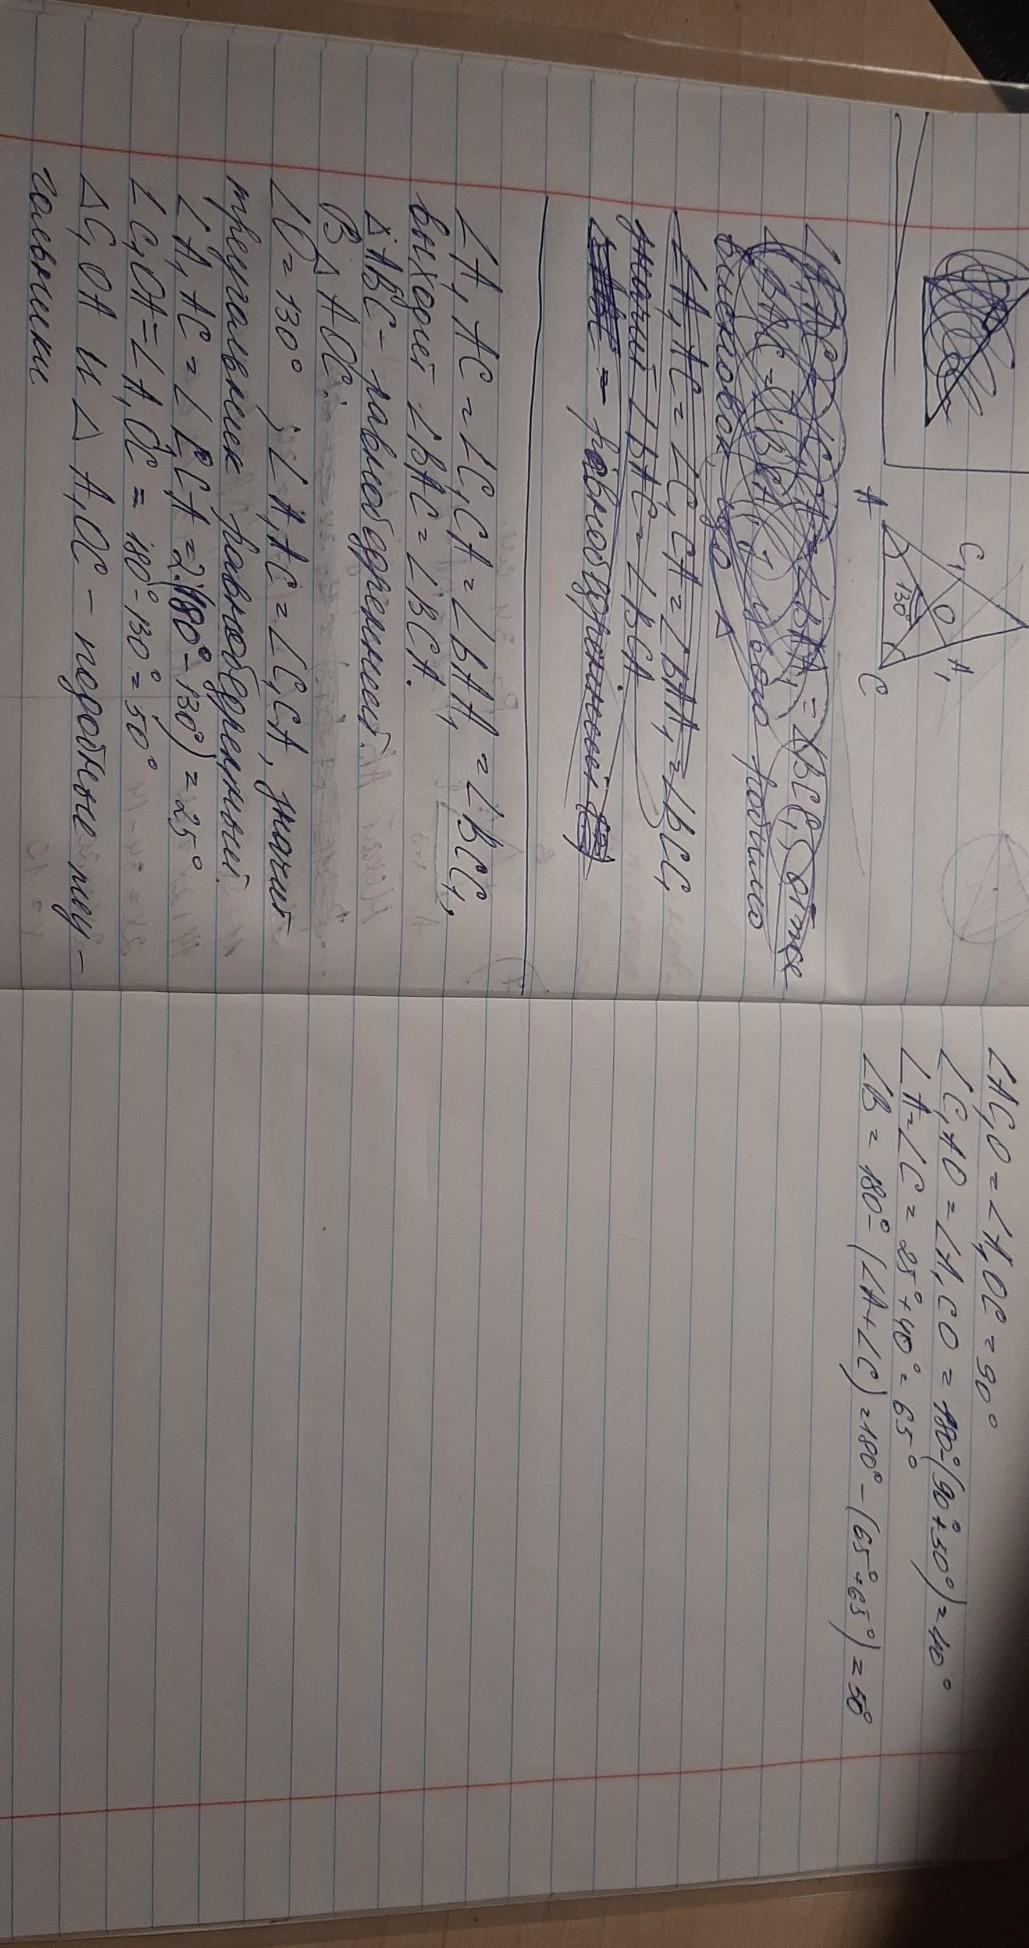 A
C₁
O
A₁
130°
C
∠A₁AC = ∠C₁CA = ∠BAA₁ = ∠BCC₁
значит ∠BAC = ∠BCA.
= равнобедренный
∠A₁AC = ∠C₁CA = ∠BAA₁ = ∠BCC₁,
выходит ∠BAC = ∠BCA.
△ABC - равнобедренный.
В △ AOC:
∠O = 130° ; ∠A₁AC = ∠C₁CA, значит
треугольник равнобедренный.
∠A₁AC = ∠C₁CA = 2·(180° - 130°) = 25°
∠C₁OA = ∠A₁OC = 180° - 130° = 50°
△C₁OA и △ A₁OC - подобные
гольники
∠AC₁O = ∠A₁OC = 90°
∠C₁AO = ∠A₁CO = 180° - (90° + 50°) = 40°
∠A = ∠C = 25° + 40° = 65°
∠B = 180° - (∠A + ∠C) = 180° - (65° + 65°) = 50°